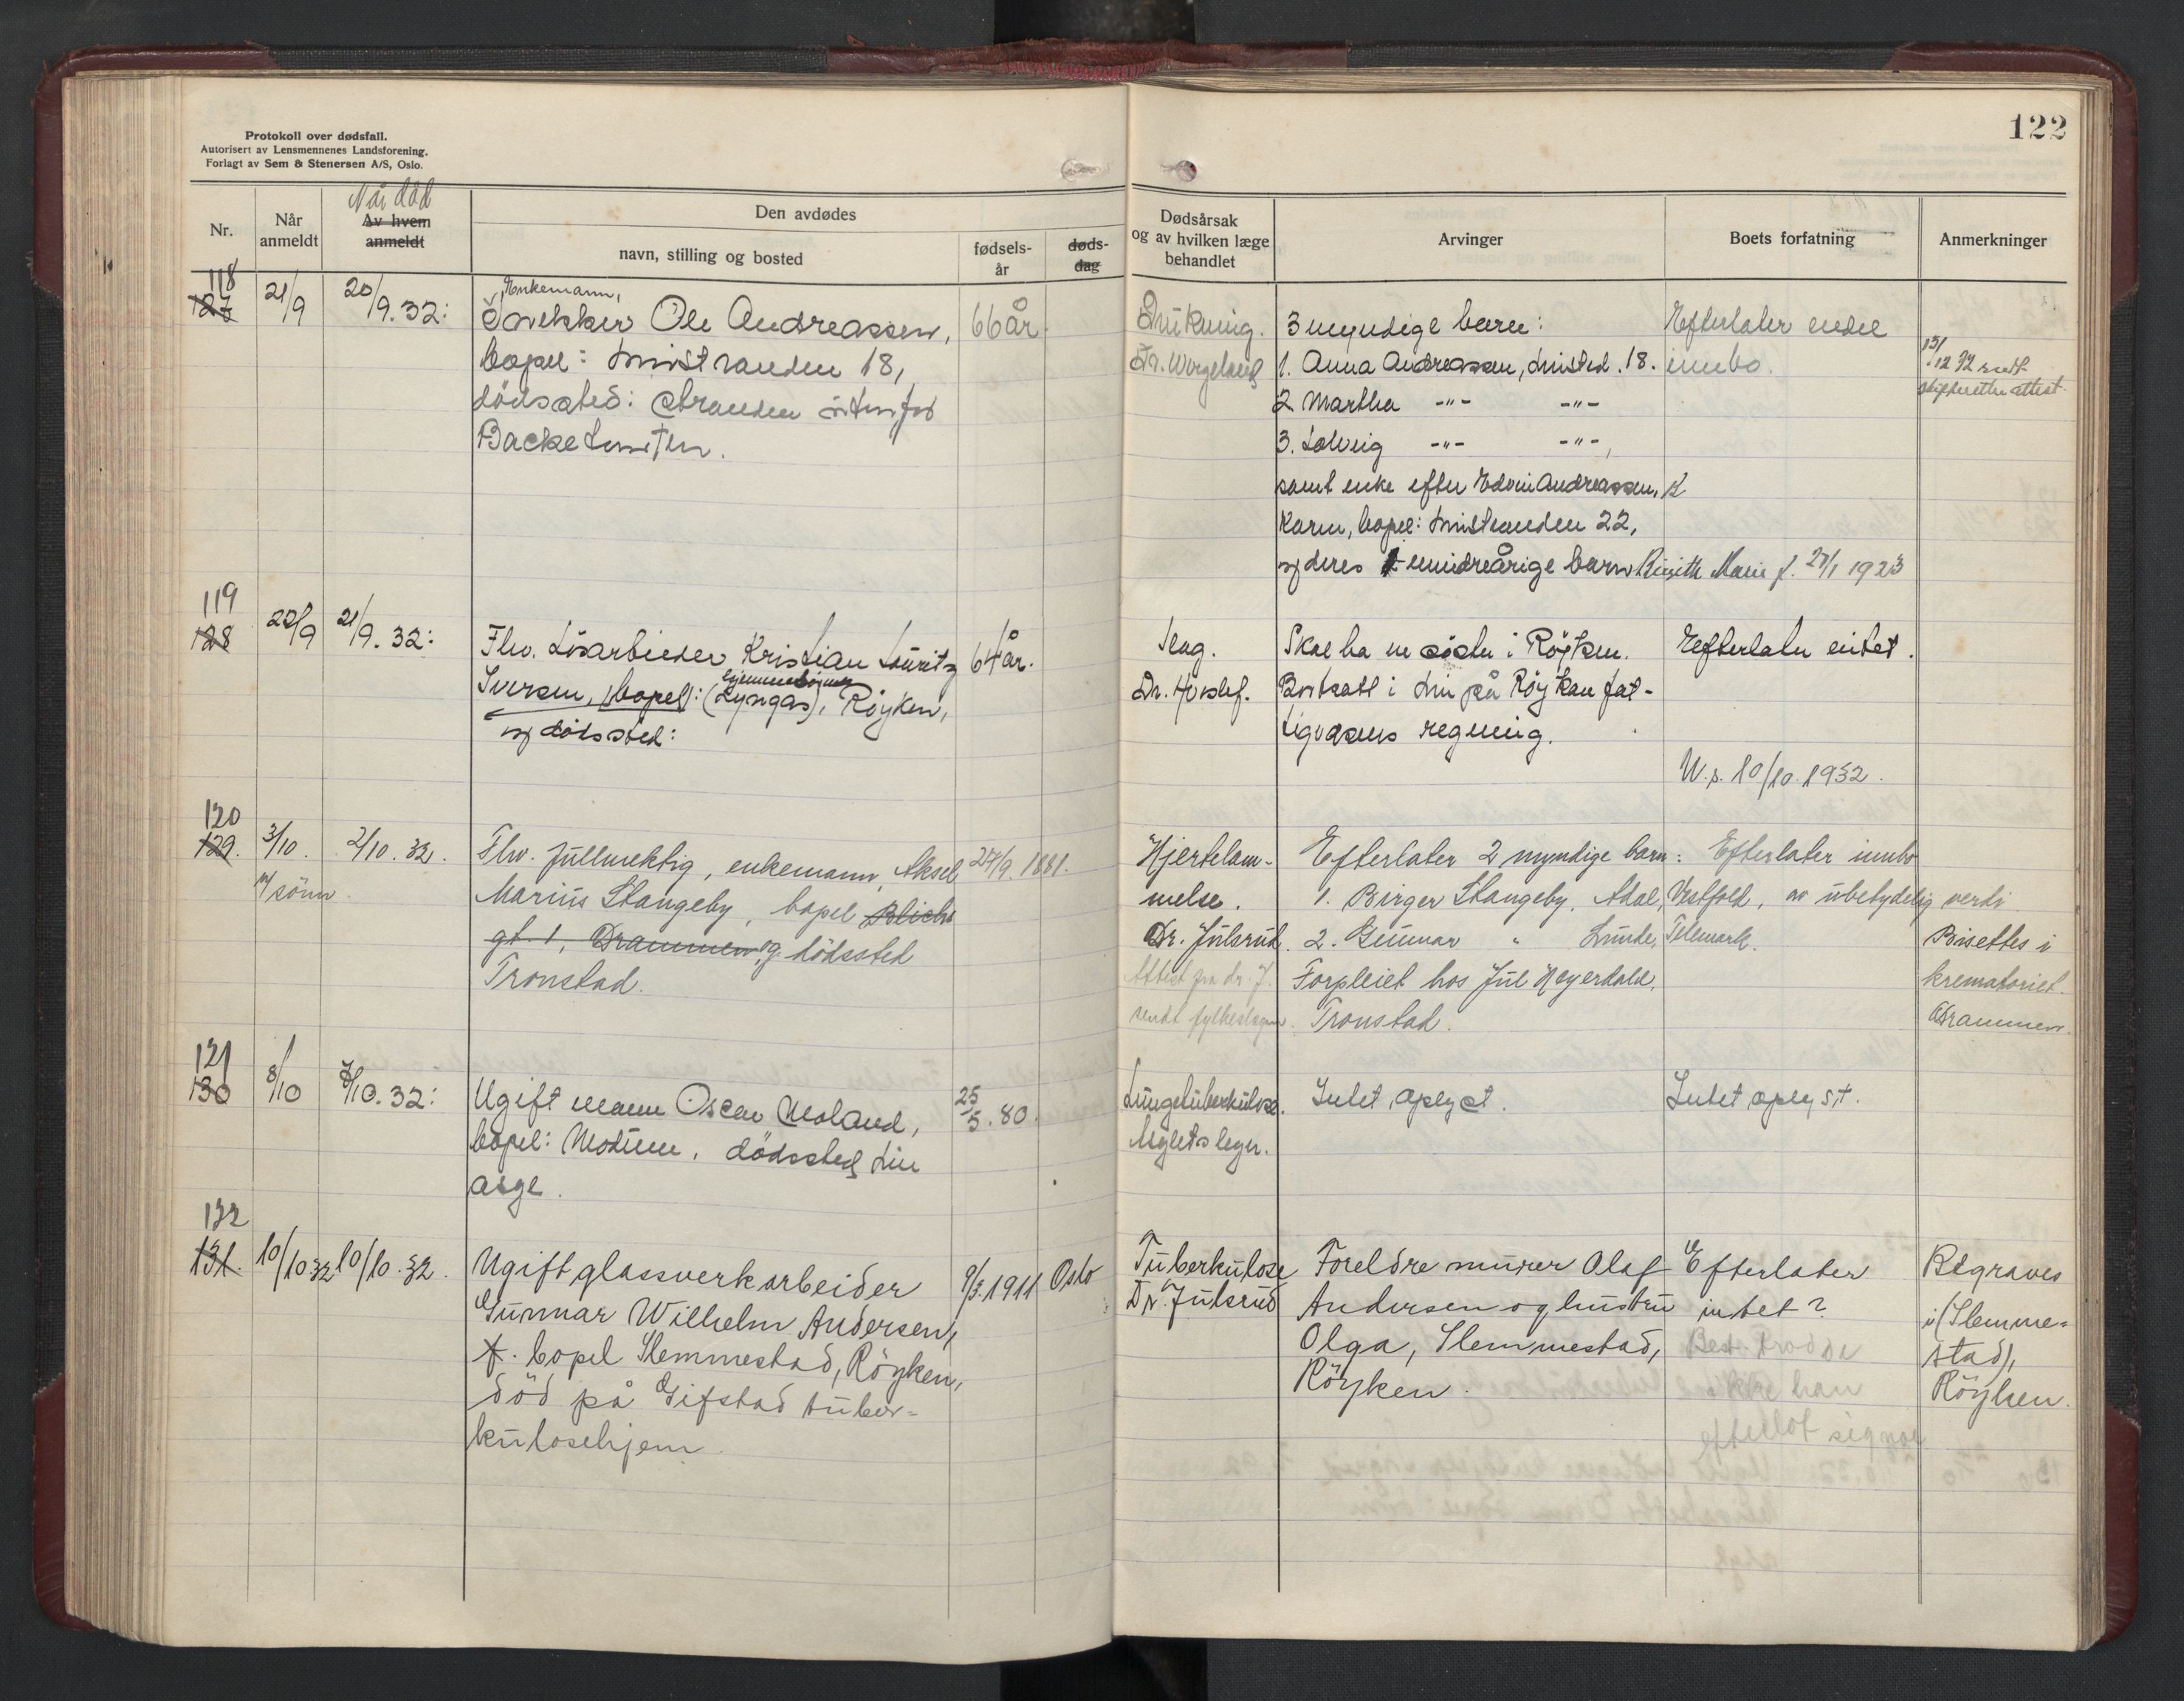 Protokoll over dødsfall.
Autorisert av Lensmennenes Landsforening.
Forlagt av Sem & Stenersen A/S, Oslo.
122
Nr.
Når anmeldt
Når död
Av hvem anmeldt
Den avdødes
navn, stilling og bosted
fødsels-
år
døds-
dag
Dødsårsak
og av hvilken læge
behandlet
Arvinger
Boets forfatning
Anmerkninger
118
127
21/9
20/9. 32:
Enkemann,
Ole Andreassen,
bopel: 18,
dödssted: Stranden
66 år
Drukning.
Dr. Wergeland
3 myndige barn:
1. Anna Andreassen, 18.
2 Martha -"- -"-
3. Solveig -"- -"-,
samt enke efter Edvin Andreassen,
Karen, bopel: 22,
og deres umindreårige barn Birgith Marie f. 27/1 1923
Efterlater endel
innbo.
13/12 32 sendt
skifteretten attest
119
128
22/9
21/9. 32:
Fhv. Løsarbeider Kristian Lauritz
Iversen, (bopel): (Lyngås), Röyken,
og dödssted:
64 år.
Slag.
Dr.
Skal ha en søster i Röyken.
Bortsatt i Lier på Röyken fat-
tigvæsens regning.
Efterlater intet.
U.s. 10/10. 1932.
120
129.
3/10.
m/ sönn.
2/10. 32.
Fhv. fullmektig, enkemann, Aksel
Marius Stangeby, bopel Blichs
gt. 1, Drammen og dödssted
Tronstad.
27/9. 1881.
Hjertelam-
melse.
Dr. Julsrud.
Attest fra dr. J.
sendt fylkeslegen.
Efterlater 2 myndige barn:
1. Birger Stangeby, Adal, Vestfold,
2. Gunnar " Lunde, Telemark.
Forpleiet hos Jul Heyerdahl,
Tronstad.
Efterlater innbo
av ubetydelig verdi
Bisettes i
krematoriet.
Drammen.
121
130
8/10
7/10. 32:
Ugift mann Oscar Moland,
bopel: Modum, dödssted Lier
asyl.
25/5. 80.
Lungetuberkulose.
Asylets leger.
Intet oplyst.
Intet oplyst.
122
131.
10/10 32
10/10. 32.
Ugift glassverkarbeider
Gunnar Wilhelm Andersen,
f. bopel Slemmestad, Röyken,
död på Gifstad tuber-
kulosehjem.
9/3. 1911
Oslo
Tuberkulose
Dr. Julsrud
Foreldre murer Olaf
Andersen og hustru
Olga, Slemmestad,
Röyken.
Efterlater
intet?
Best. trodde
ikke han
efterlot sig noe
Begraves
i (Slemme-
stad),
Röyken.